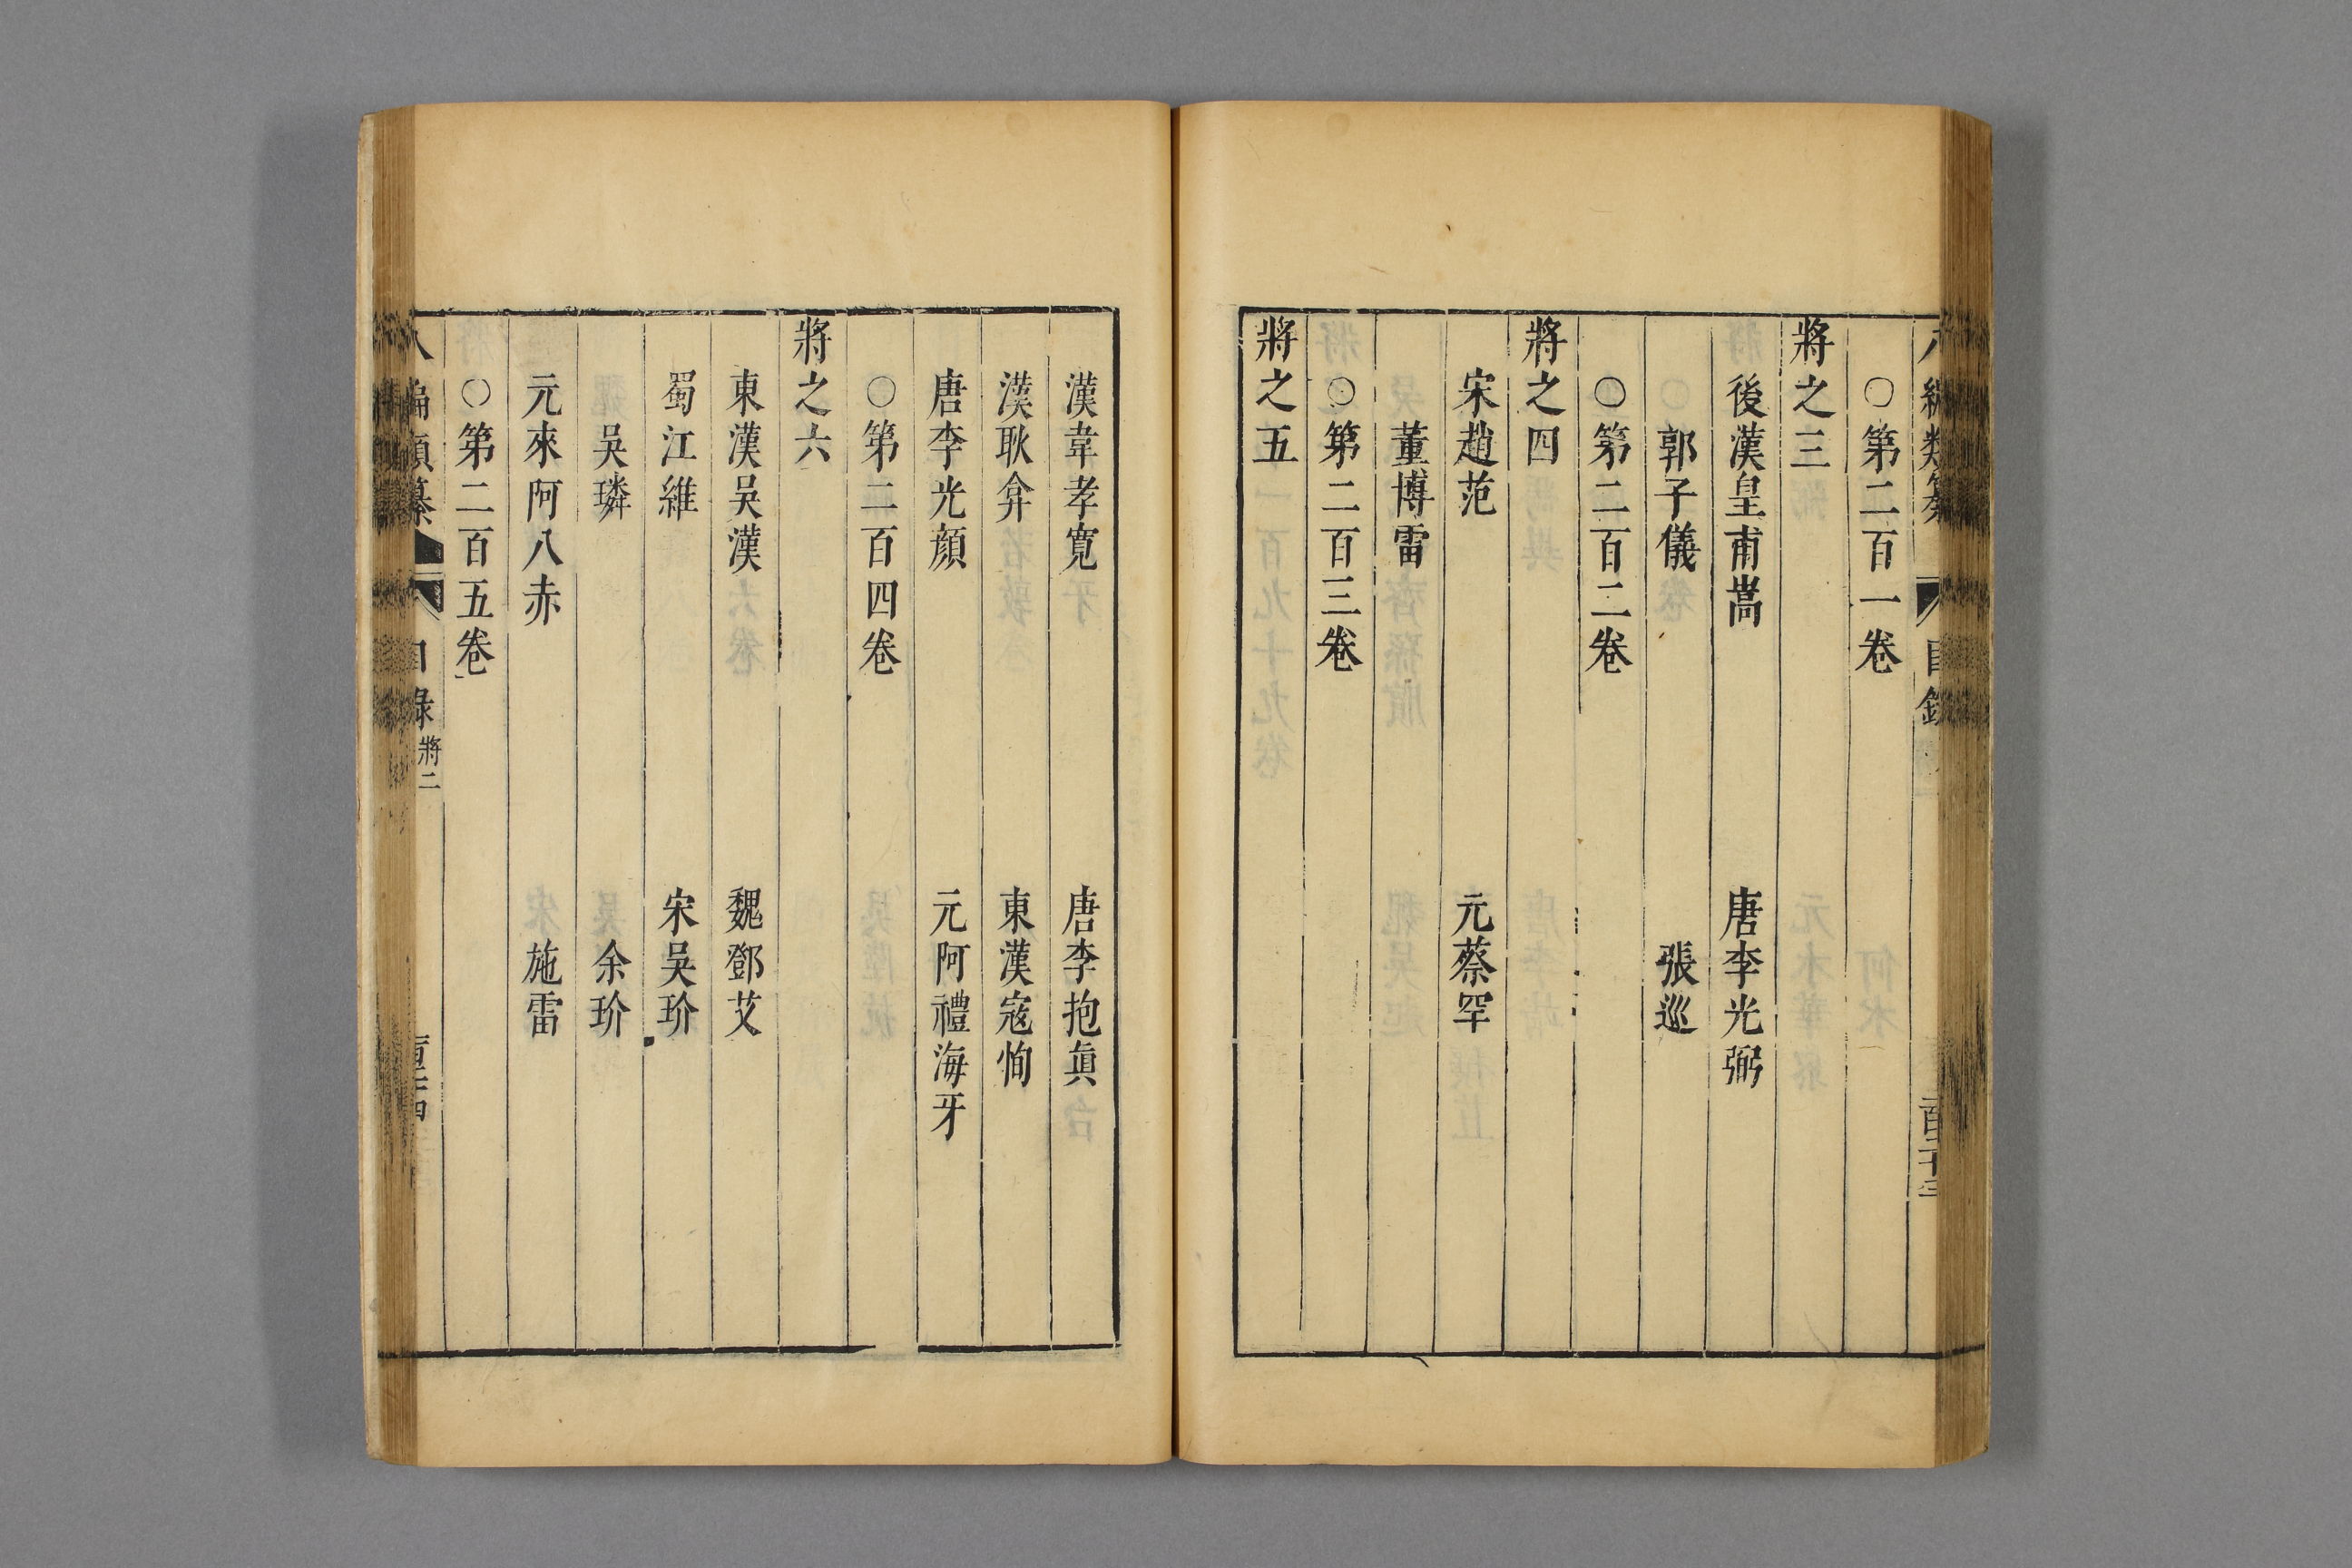 ○第二百一卷
將之三
後漢皇甫嵩　唐李光弼
郭子儀　張巡
○第二百二卷
將之四
宋趙范　元蔡罕
董博雷
○第二百三卷
將之五
漢韋孝寬　唐李抱眞
漢耿弇　東漢寇恂
唐李光顔　元阿禮海牙
○第二百四卷
將之六
東漢吳漢　魏鄧艾
蜀江維　宋吳玠
吳璘　余玠
元來阿八赤　施雷
○第二百五卷
編類纂　目錄　將二